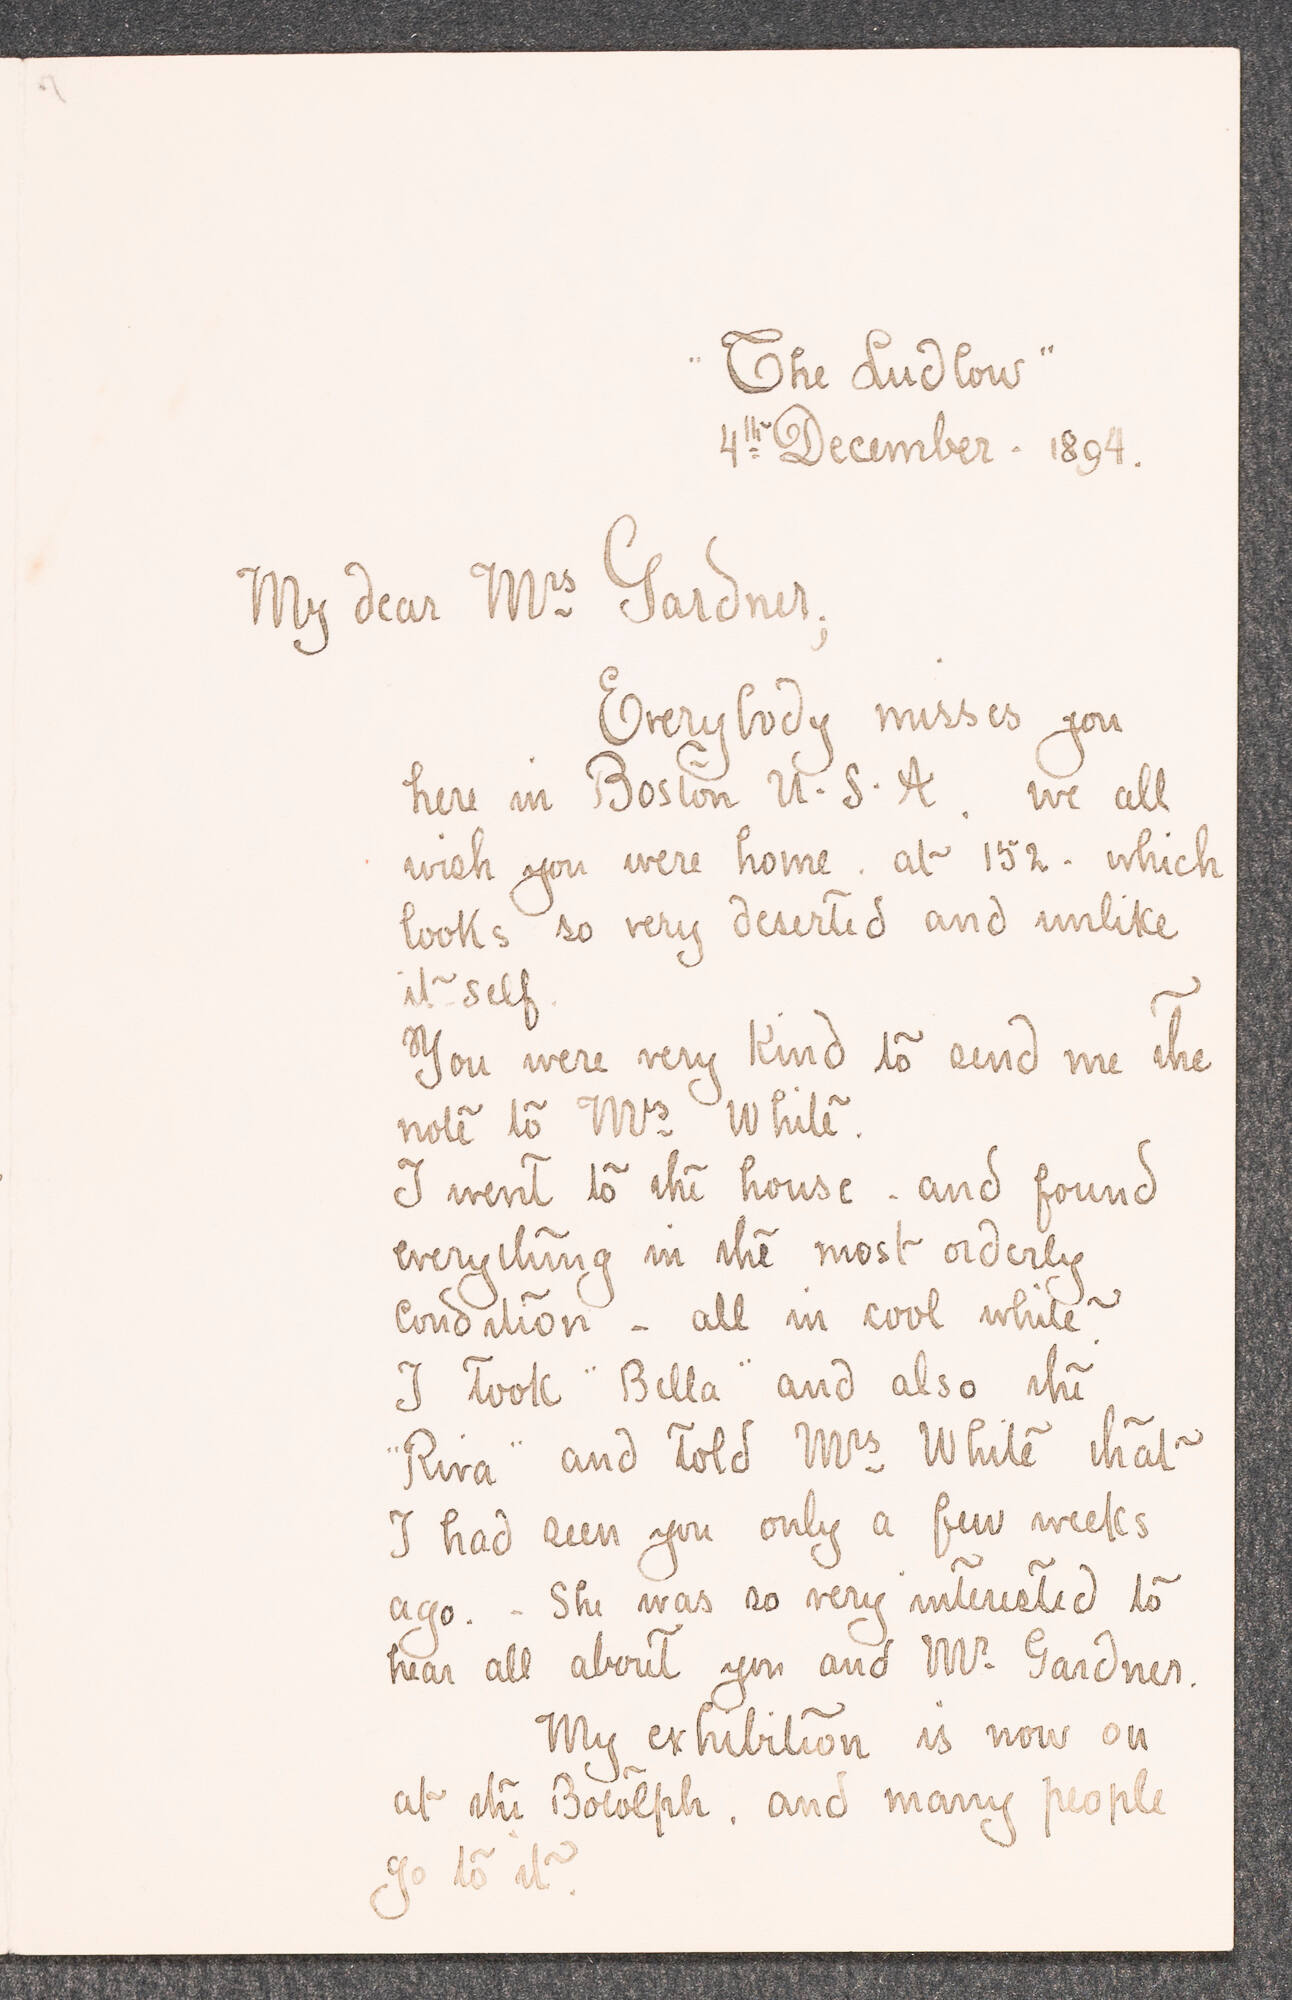 "The Ludlow"
4th December - 1894.
My dear Mrs Gardner;
Everybody misses you
here in Boston U.S.A. we all
wish you were home. at 152 - which
looks so very deserted and unlike
it self.
You were very kind to send me the
note to Mrs White.
I went to the house - and found
everything in the most orderly
condition - all in cool white.
I took "Bella" and also the
"Riva" and told Mrs White that
I had seen you only a few weeks
ago. - She was so very interested to
hear all about you and Mr. Gardner.
My exhibition is now on
at the Botolph, and many people
go to it.